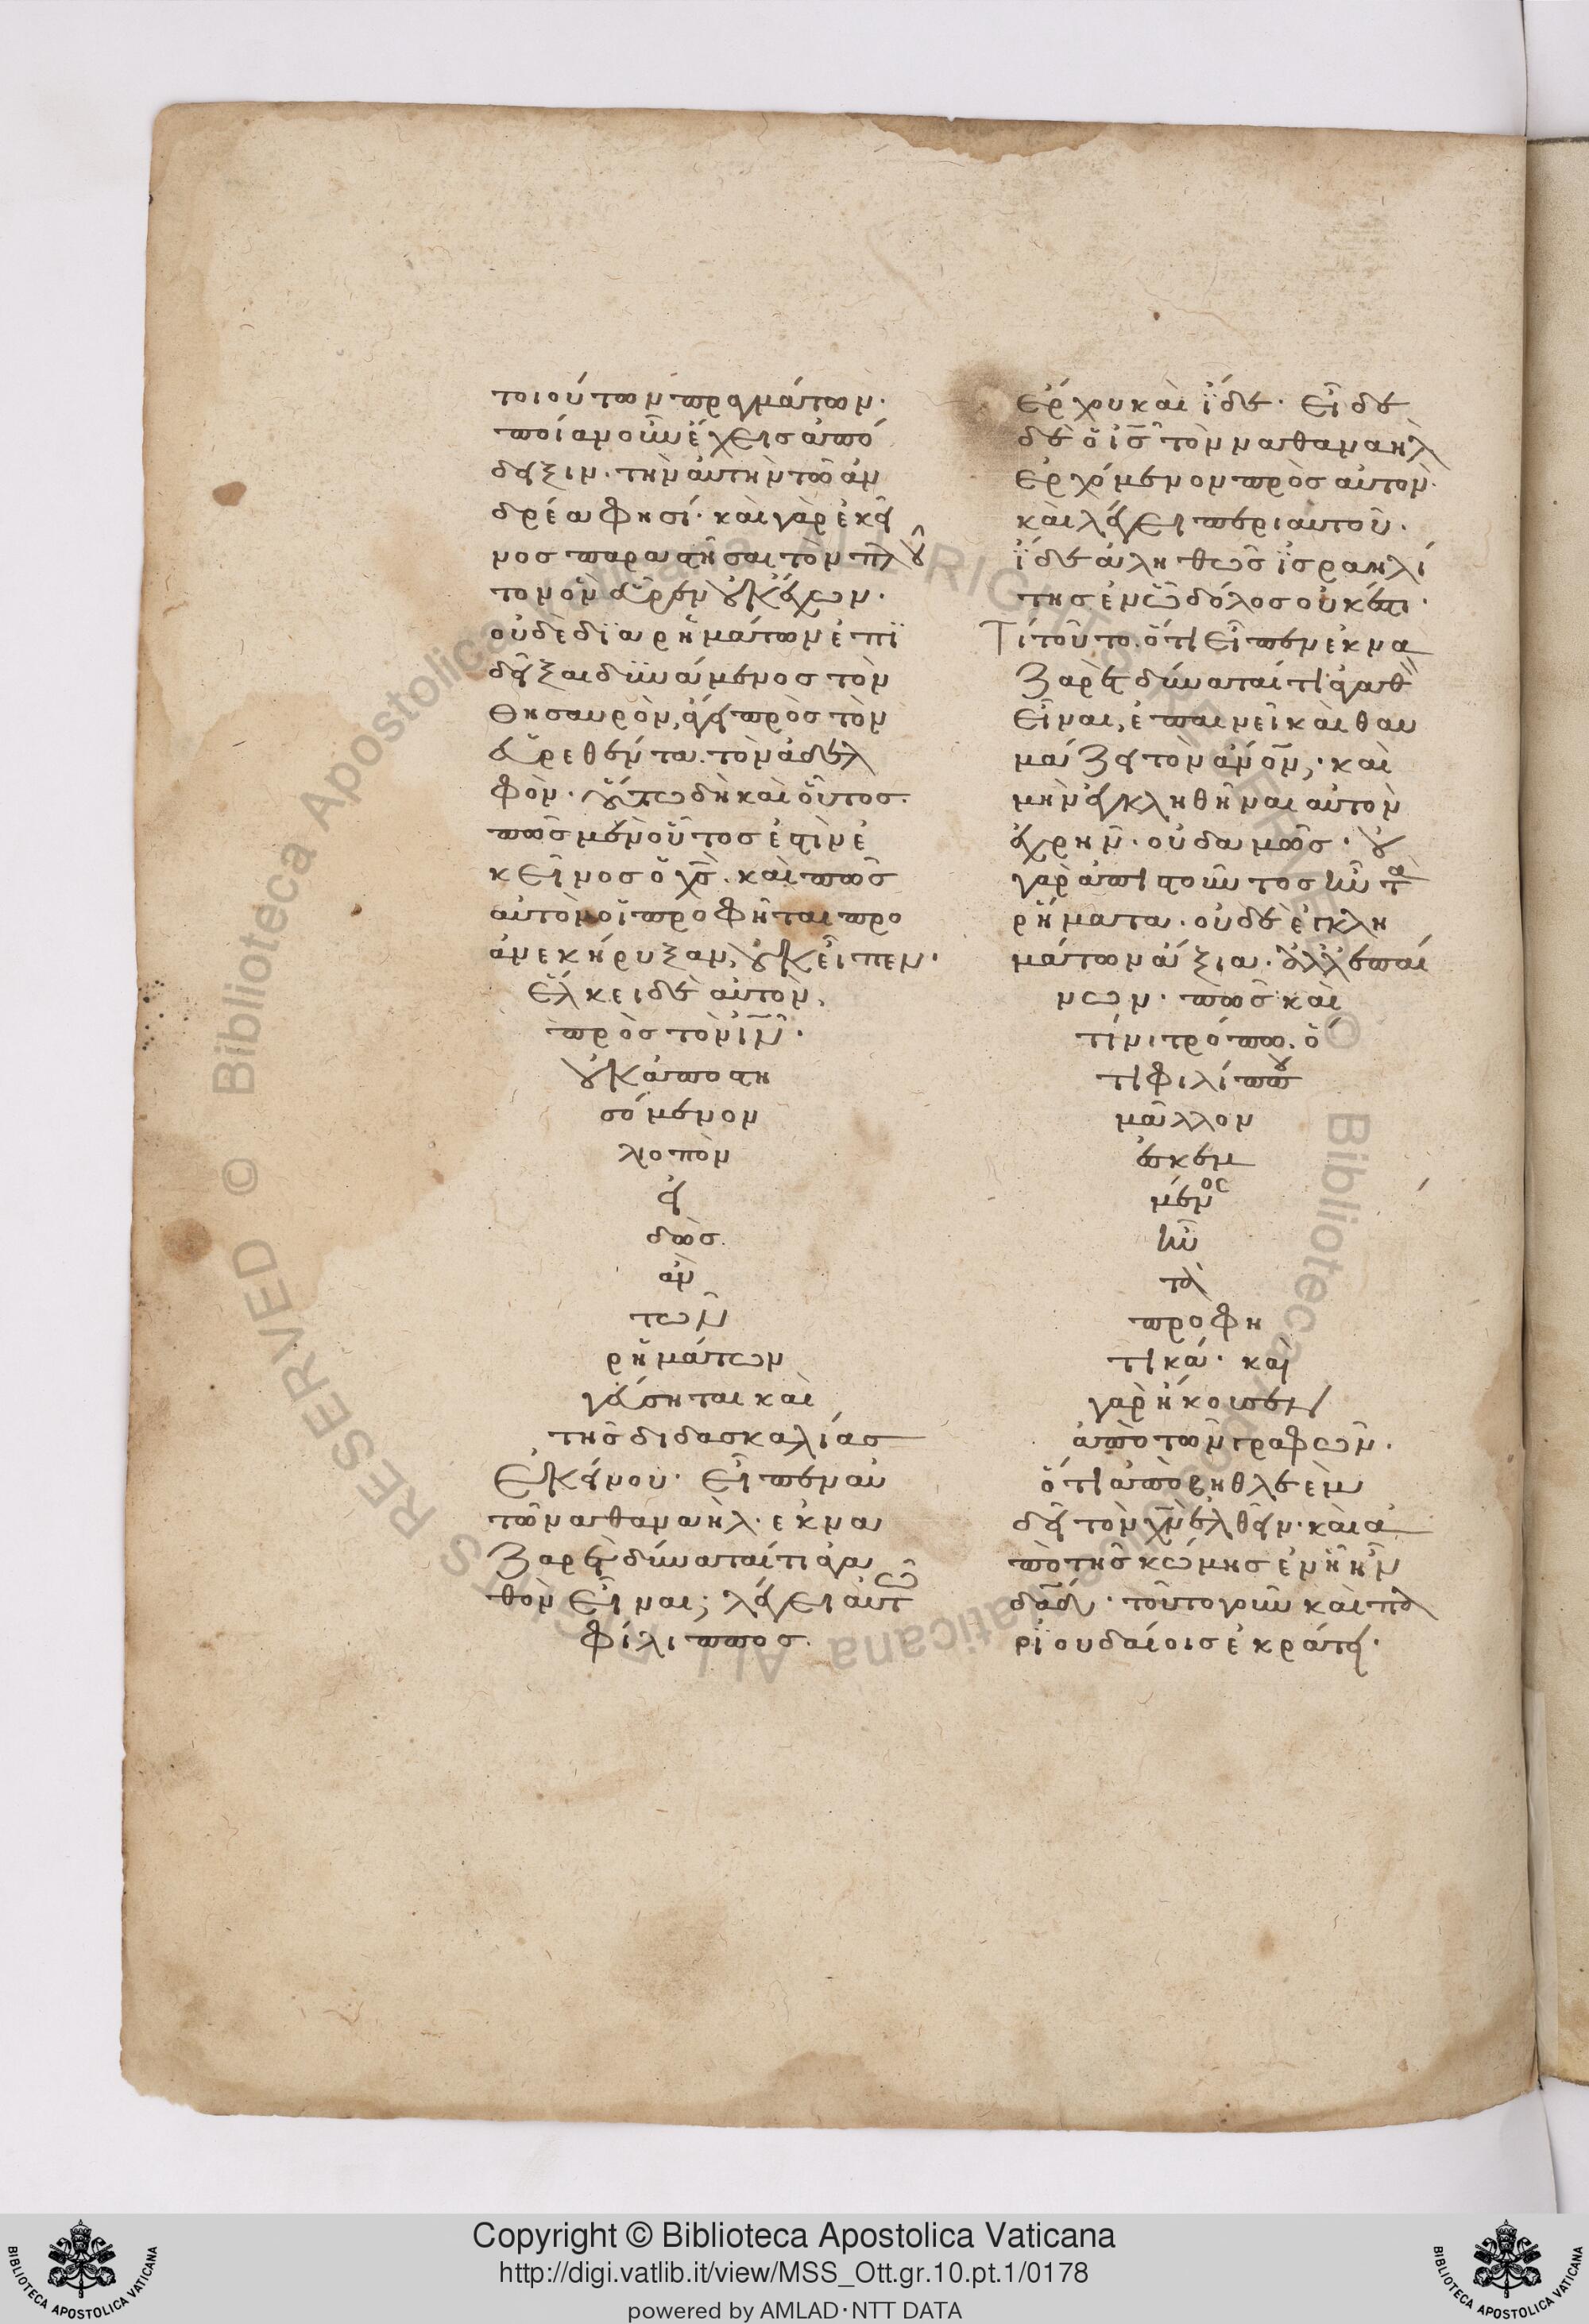 τοιούτων πραγμάτων·
ποίαν οὖν ἔχεις ἀπό
δειξιν· τὴν αὐτὴν τῷ ἀν
δρέα φησί· καὶ γὰρ ἐκεῖ
νος παραστῆσαι τὸν πλοῦ
τον ὃν εὗρεν οὐκ ἔχων·
οὐδὲ διὰ ρημάτων ἐπι
δεῖξαι δυνάμενος τὸν
θησαυρὸν, ἄγει πρὸς τὸν
εὑρεθέντα τὸν ἀδελ
φόν· οὕτω δὴ καὶ οὗτος·
πῶς μὲν οὗτος ἐστὶν ἐ
κεῖνος ὁ χς· καὶ πῶς
αὐτὸν οἱ προφῆται προ
ανεκήρυξαν, οὐκ εἶπεν·
ἕλκει δὲ αὐτὸν,
πρὸς τὸν ιν·
οὐκ ἀποστη
σόμενον
λοιπὸν
εἰ
δὼς
ἂν
τῶν
ρημάτων
γεύσηται καὶ
τῆς διδασκαλίας
ἐκείνου· εἶπεν αὐ
τῷ ναθαναὴλ· ἐκ να
ζαρὲτ δύναταί τι ἀγα
θὸν εἶναι; λέγει αὐτῷ
φίλιππος·
ἔρχου καὶ ἴδε· εἶδε
δὲ ὁ ις τὸν ναθαναὴλ
ἐρχόμενον πρὸς αὐτὸν·
καὶ λέγει περὶ αὐτοῦ·
ἴδε ἀληθῶς ἰσραηλί
της ἐν ᾧ δόλος οὐκ ἔστι·
Τί τοῦτο· ὅτι εἶπεν ἐκ να
ζαρὲτ δύναταί τι ἀγαθ
εἶναι, ἐπαινεῖ καὶ θαυ
μάζει τὸν ἀνον, καὶ
μὴν ἐγκληθῆναι αὐτὸν
ἐχρῆν· οὐδαμῶς· οὐ
γὰρ ἀπιστοῦντος ἦν τὰ
ρήματα· οὐδὲ ἐγκλη
μάτων ἄξια· ἀλλ' ἐπαί
νων· πῶς καὶ
τίνι τρόπω· ὅ
τι φιλίππου
μᾶλλον
ἐσκεμ
μένος
ἦν
τὰ
προφη
τικά· καὶ
γὰρ ἤκουσεν
ἀπὸ τῶν γραφῶν·
ὅτι ἀπὸ βηθλεὲμ
δεῖ τὸν χν ἐλθεῖν· καὶ ἀ
πὸ τῆς κώμης ἐν ᾗ ἦν
δαδ· τοῦτο γοῦν καὶ πα
ρ' ἰουδαίοις ἐκράτει·
Copyright © Biblioteca Apostolica Vaticana
http://digi.vatlib.it/view/MSS_Ott.gr.10.pt.1/0178
powered by AMLAD·NTT DATA